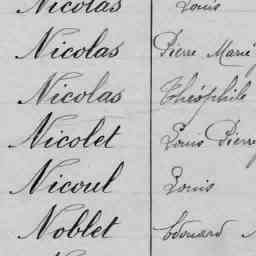 Nicolas Louis
Nicolas Pierre Marie
Nicolas Théophile
Nicolet Louis Pierre
Nicoul Louis
Noblet Edouard